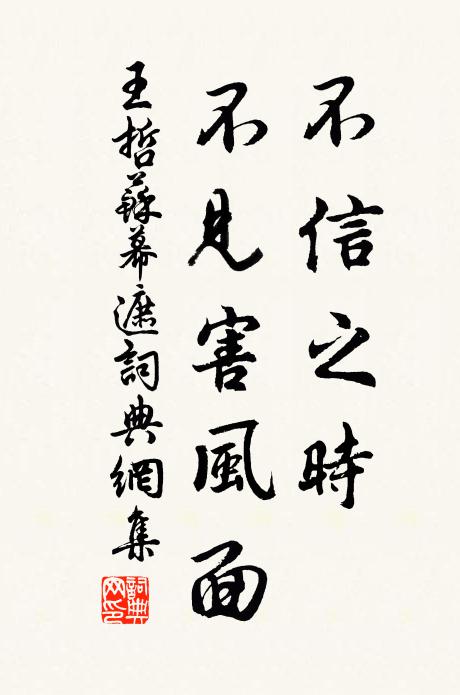 不信之時
不見害風面
王哲蘇幕遮詞典網集
詞典網印